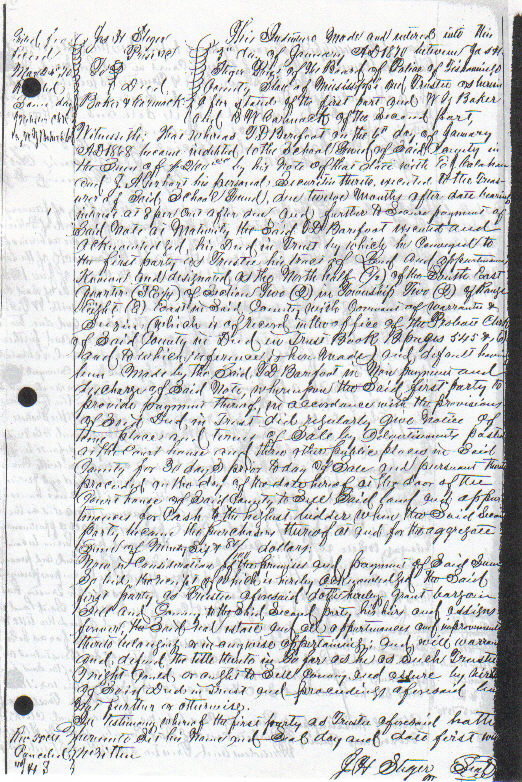 Jas H Steger
President
To } Deed
Baker & Carmack
This Indenture made and entered into this
day of January AD 1870 between Jas H
Steger President of the Board of Police of Tishomingo
County State of Mississippi and Trustee as herein
after stated of the first part and W J Baker
and Carmack of the Second part,
Witnesseth; That whereas T D Barefoot on the 6th day of January
AD 1868 became indebted to the School Fund of Said County in
the Sum of by his Note of that date with
and his personal Securities thereto, executed to the Treas-
urer of Said School Fund, due twelve months after date bearing
interest at 8 per cent after due and further to Secure payment of
Said Note at Maturity the Said T D Barefoot executed and
acknowledged his Deed in Trust by which he Conveyed to
the first party as Trustee his tract of Land and appurtenances
Known and designated as the North half (½) of the South East
Quarter (S E ¼) of Section Two (2) in Township Two (2) of Range
Eight (8) East in Said County with Covenant of Warranty &
Seizin (which is of record in the office of the Probate Clerk
of Said County in Deed in Trust Book B pages 545 &
and to which reference is here made) and default having
been made by the Said T D Barefoot in Non payment and
discharge of Said Note, whereupon the Said first party to
provide payment thereof in accordance with the provisions
of Said Deed in Trust did regularly give Notice of
time place and terms of Sale by Advertisements posted
at the Court house and three other public places in Said
County for 30 days prior to day of Sale and pursuant thereto
proceeded on the day of the date hereof at the door of the
Court house of Said County to Sell Said land and appur-
tenances for Cash to the highest bidder when the Said Second
party became the purchasers thereof as and for the aggregate
Sum of Ninety Six & dollars.
Now in Consideration of the premises and payment of Said Sum
So bid, the receipt of which is hereby acknowledged the Said
first party as Trustee aforesaid doth hereby Grant bargain
Sell and Convey to the Said Second party his heirs and assigns
forever, the Said real estate and all appurtenances and improvements
thereto belonging or in anywise appertaining; and will warrant
and defend the title thereto in So far as he as Such Trustee
might could or ought to Sell Convey and assure by virtue
of Said Deed in Trust and proceedings aforesaid but
not further or otherwise.
In testimony whereof the first party as Trustee aforesaid hath
hereunto Set his Name and Seal day and date first
written
J H Steger Seal